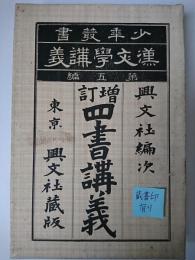 少年叢書
漢文學講義
第五編
興文社編次
增訂四書講義
東京 興文社藏版
蔵書印
有り